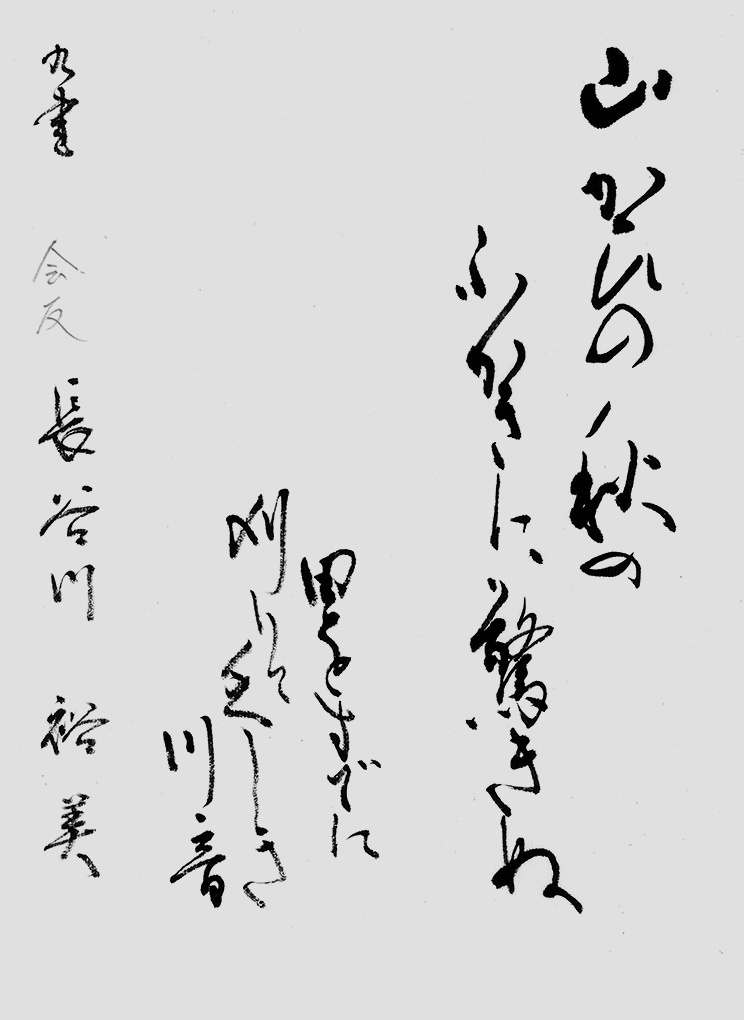 山かひの秋の
ふかきに驚きぬ
田をすでに
刈りて乏しき
川音
九書 会友 長谷川 裕美